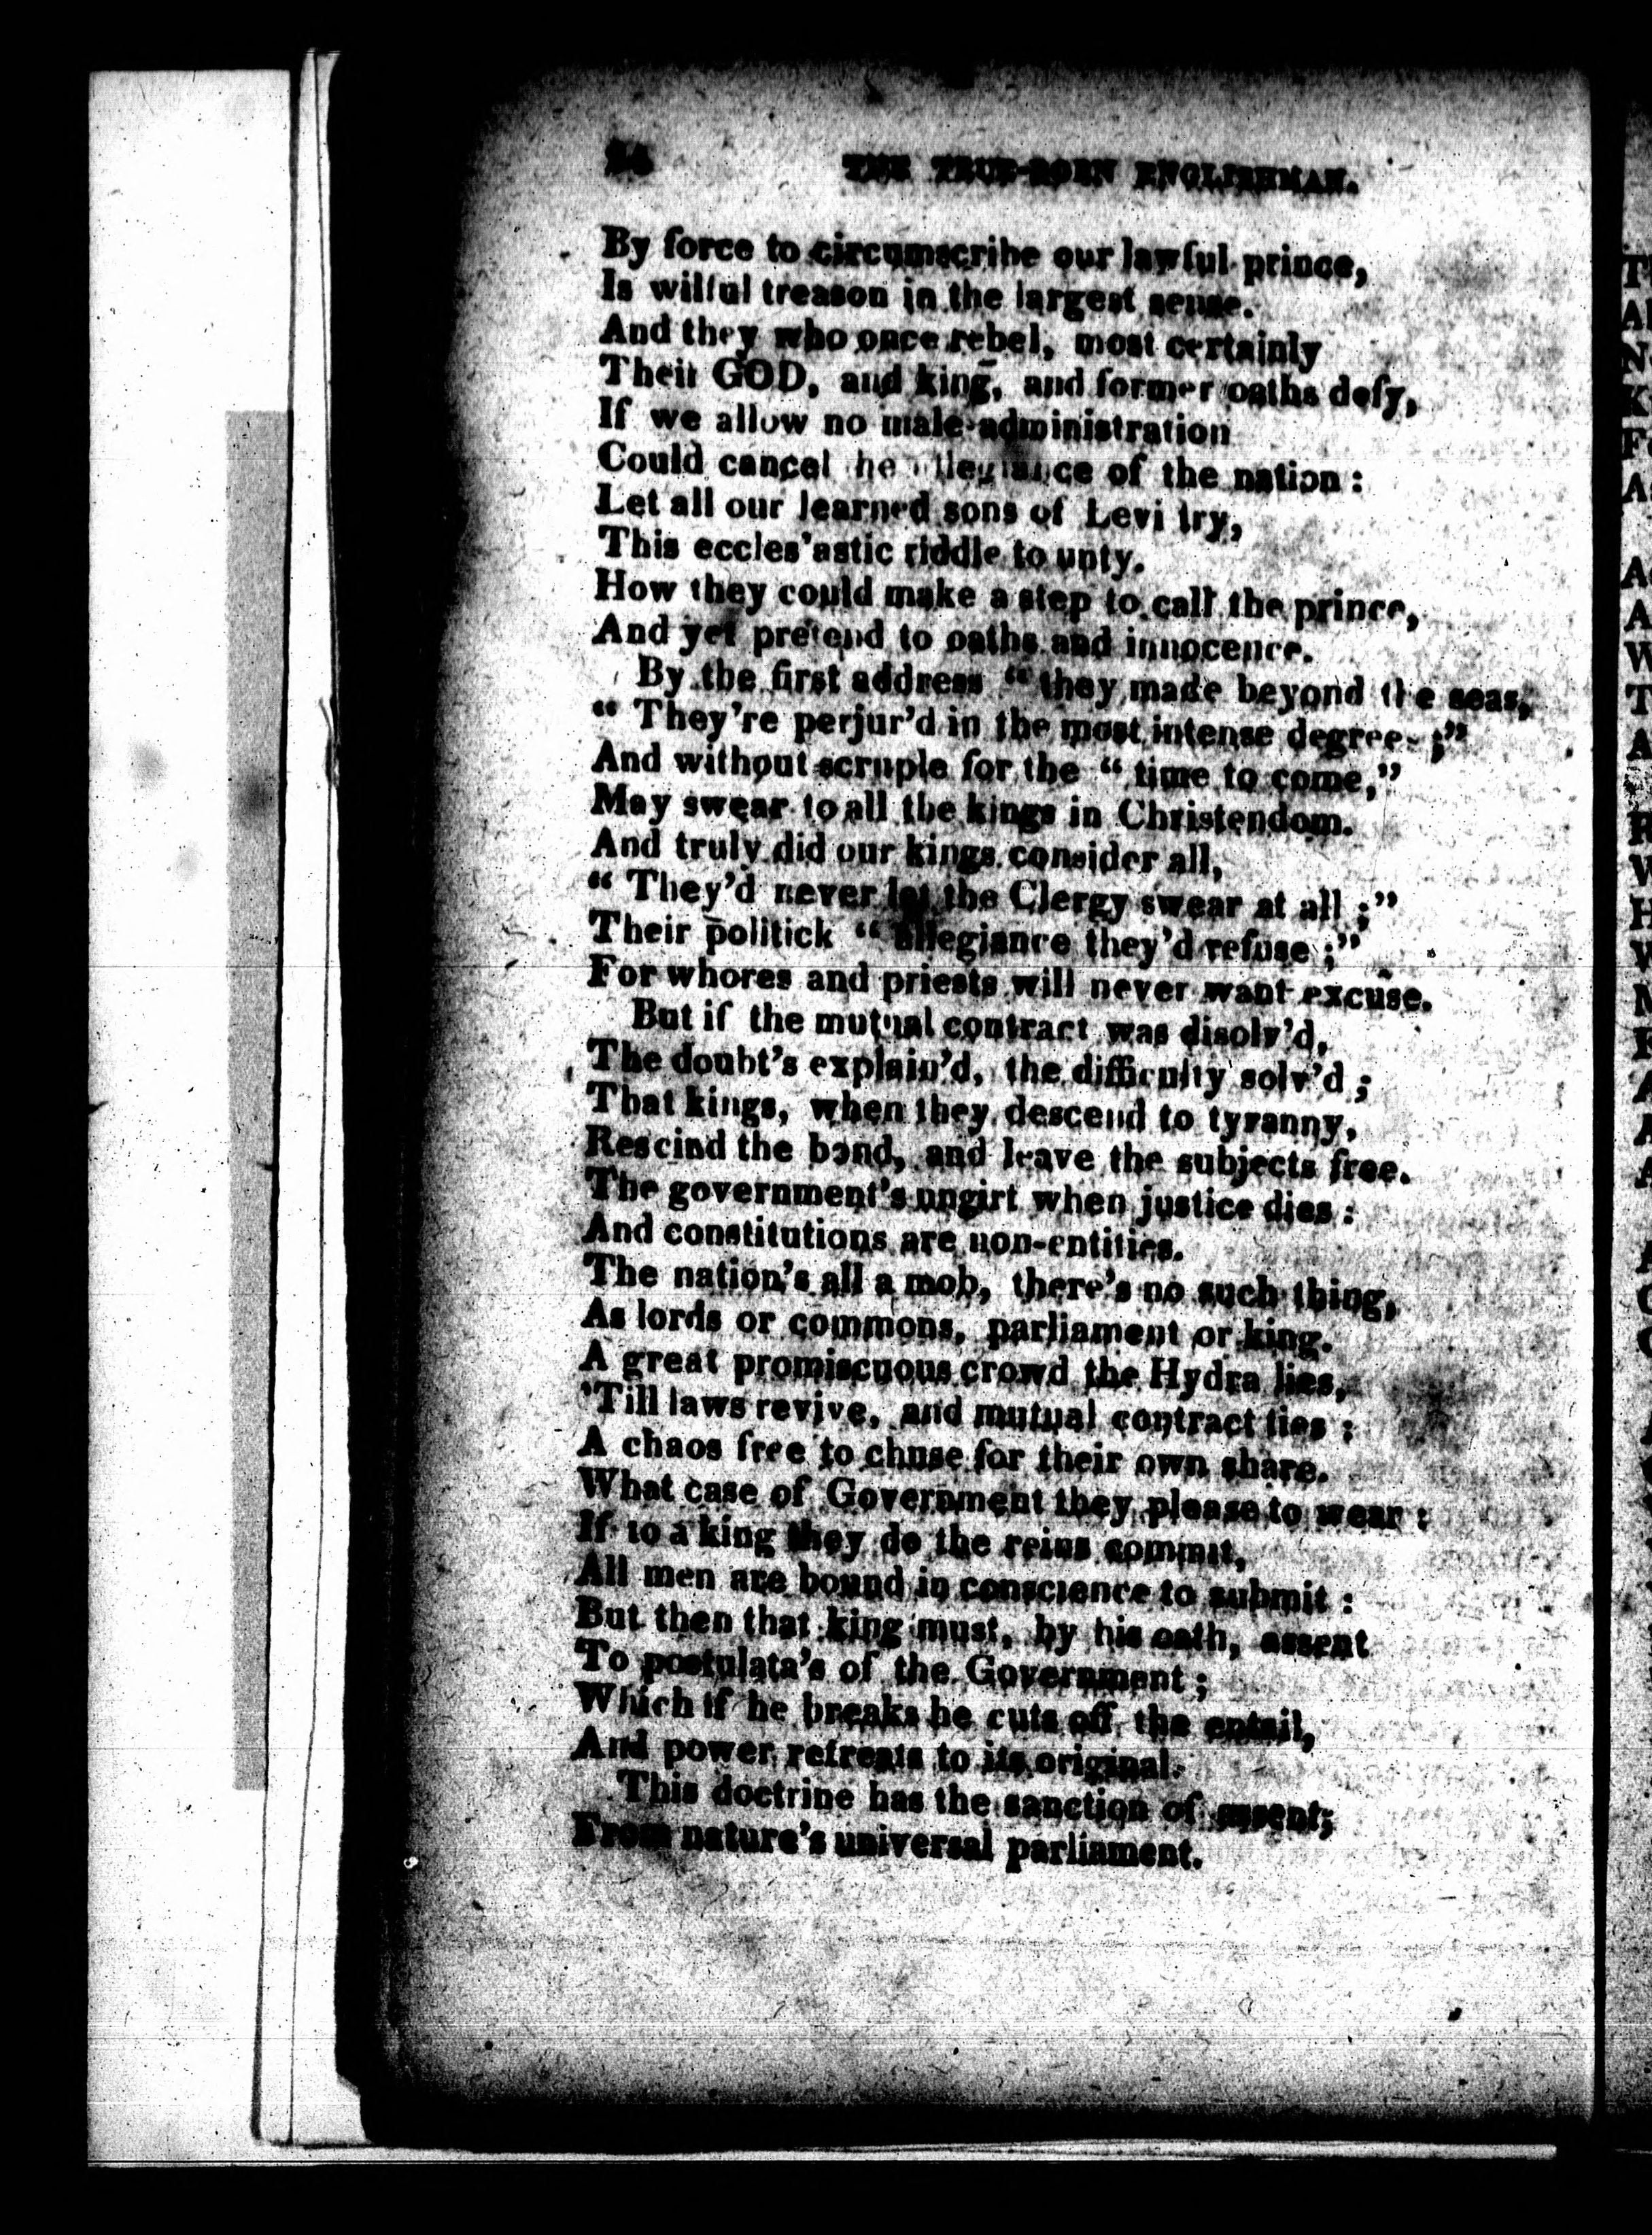 24 THE TRUE-BORN ENGLISHMAN.
By force to circumscribe our lawful prince,
Is wilful treason in the largest sense.
And they who once rebel, most certainly
Their GOD, and king, and former oaths defy,
If we allow no male-administration
Could cancel he allegiance of the nation :
Let all our learned sons of Levi try,
This eccles'astic riddle to unty.
How they could make a step to call the prince,
And yet pretend to oaths and innocence.
By the first address “ they made beyond the seas,
“ They're perjur'd in the most intense degree ;”
And without scruple for the “ time to come,”
May swear to all the kings in Christendom.
And truly did our kings consider all,
“ They'd never let the Clergy swear at all ;”
Their politick “ allegiance they'd refuse ;”
For whores and priests will never want excuse.
But if the mutual contract was disolv'd,
The doubt's explain'd, the difficulty solv'd ;
That kings, when they descend to tyranny,
Rescind the bond, and leave the subjects free.
The government's ungirt when justice dies :
And constitutions are non-entities.
The nation's all a mob, there's no such thing,
As lords or commons, parliament or king.
A great promiscuous crowd the Hydra lies,
'Till laws revive, and mutual contract ties :
A chaos free to chuse for their own share.
What case of Government they please to wear :
If to a king they do the reins commit,
All men are bound in conscience to submit :
But then that king must, by his oath, assent
To postulata's of the Government ;
Which if he breaks he cuts off the entail,
And power retreats to its original.
This doctrine has the sanction of assent,
From nature's universal parliament.